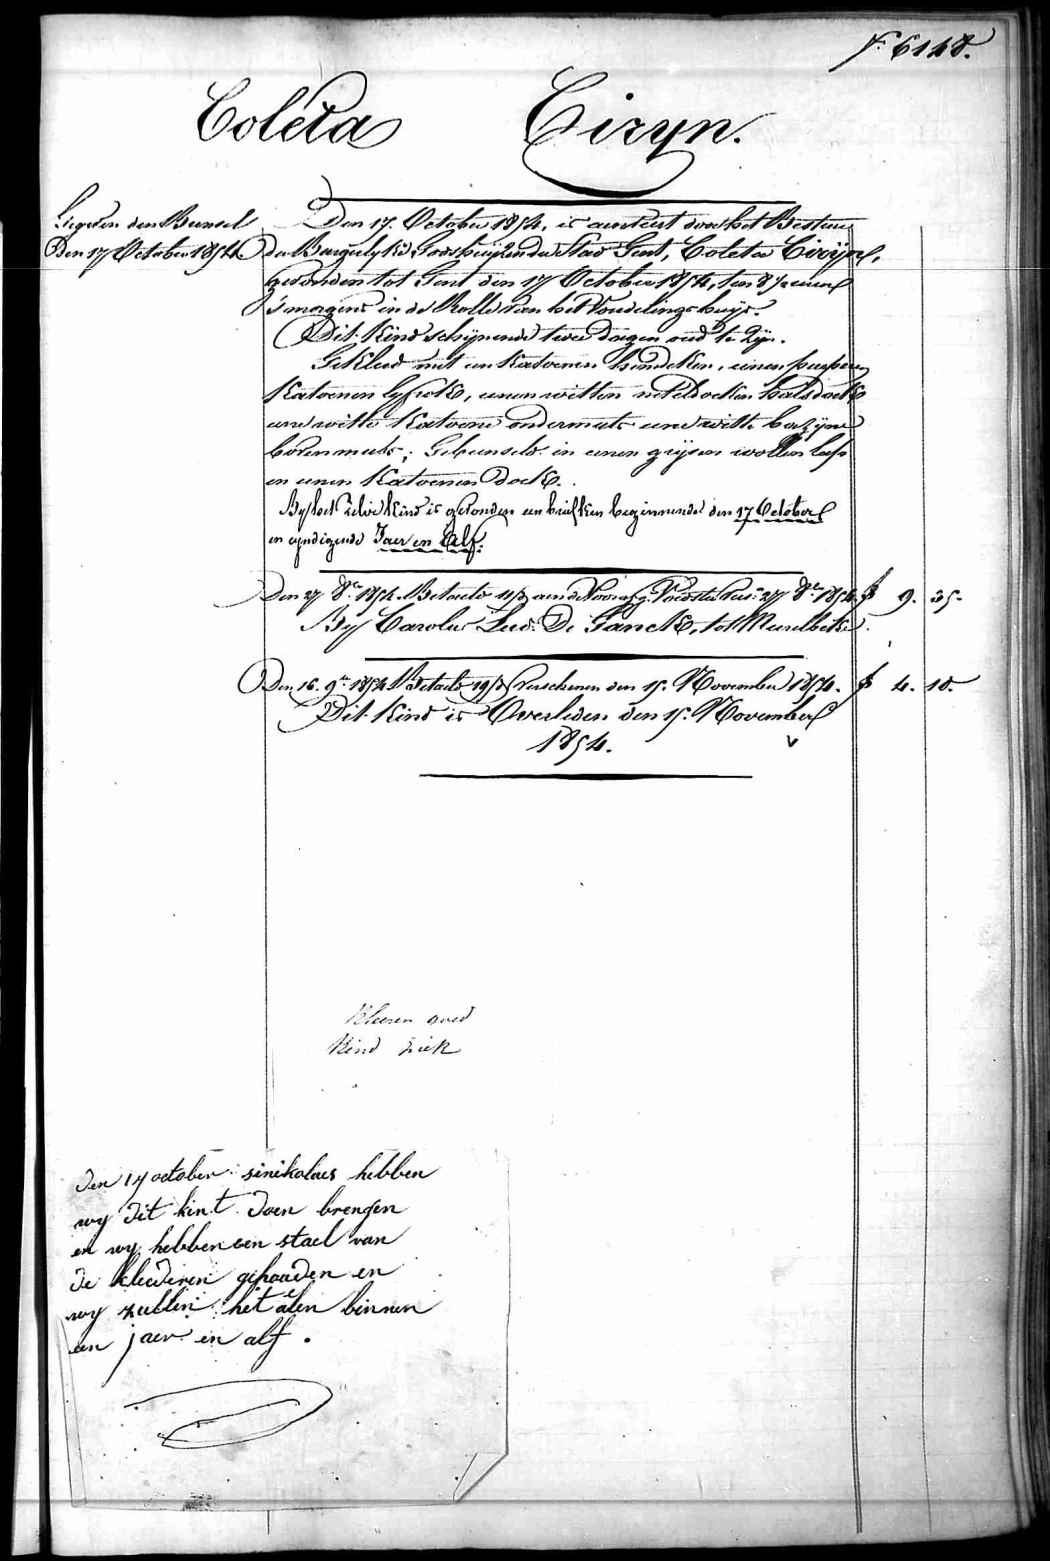 f. 6148.
Coleta Ciryn.
Liggeren den Bunsel
Den 17 October 1854
Den 17. October 1854, is aenveert door het Bestuer
der Burgerlyke Godshuyzen der Stad Gent, Coleta Ciryn,
gevonden tot Gent den 17 October 1854, ten 8 ½ uren
's morgens in de Rolle van het Vondelingshuys.
Dit Kind schynende twee dagen oud te zyn.
Gekleed met een Katoenen hemdeken, eenen purperen
Katoenen lyfrok, eenen witten neteldoeken halsdoek
eene witte Katoene ondermuts eene witte bazyne
bovenmuts; Gebunseld in eenen gryzen wollen lap
en eenen Katoenen doek.
By het zelve Kind is gevonden een briefken beginnende den 17 October
en eyndigende Jaer en Alf.
Den 27 8.er 1854 Betaeld 11/3 aen de Voorzg. Voedster 27 8.er 1854 9. 35.
By Carolus Lud. De Ganck, tot Meirelbeke.
Den 16. 9.er 1854 Betaeld 19/3 Verschenen den 15. November 1854. 4. 18.
Dit Kind is Overleden den 15. November
1854.
Kleeren goed
Kind ziek
den 17 october sinikolaes hebben
wy dit kint doen brengen
en wy hebben een stael van
de kleederen gehouden en
wy zullen het alen binnen
een jaer en alf.